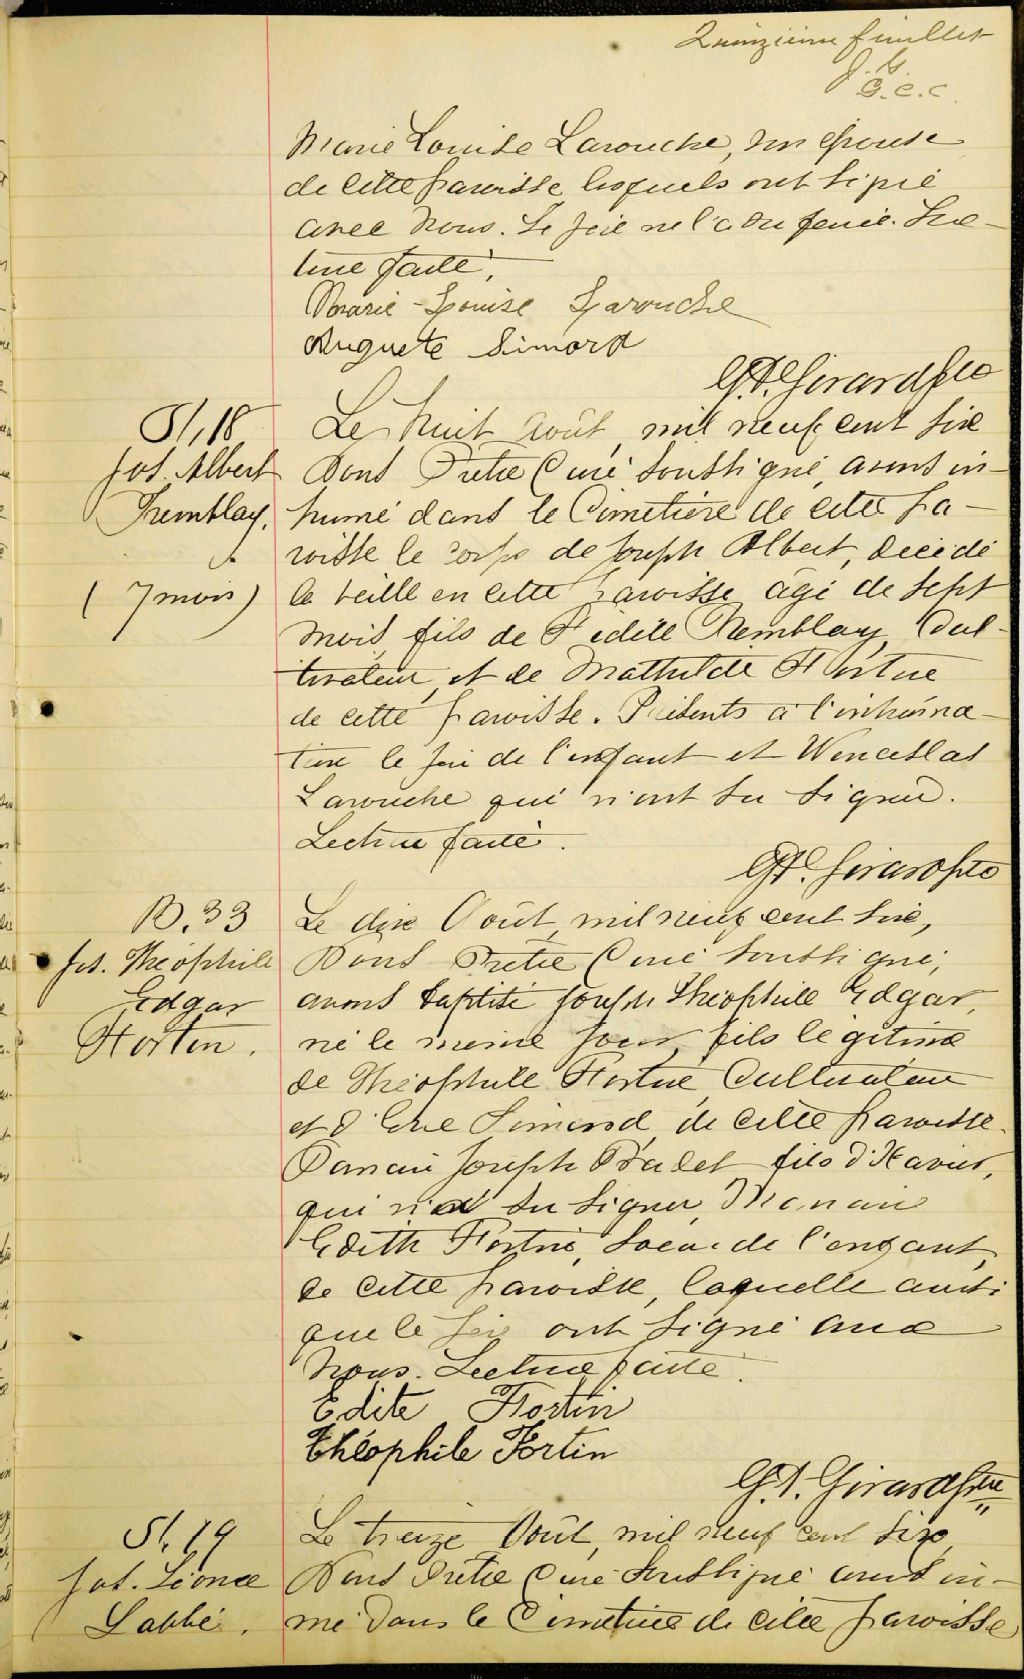 Quinzième feuillet
J. G.
G. C. C.
Marie Louise Larouche, son épouse
de cette paroisse lesquels ont signé
avec nous. Le père ne l'a su faire. Lec-
ture faite.
Marie-Louise Larouche
Auguste Simard
G. Girard Ptre
S. 18
Jos. Albert
Tremblay.
( 7 mois )
Le huit Août, mil neuf cent six
Nous Prêtre Curé soussigné, avons in-
humé dans le Cimetière de cette pa-
roisse le corps de Joseph Albert, décédé
la veille en cette paroisse âgé de sept
mois, fils de Fidèle Tremblay, Cul-
tivateur, et de Mathilde Fortin
de cette paroisse. Présents à l'inhuma-
tion le père de l'enfant et Wenceslas
Larouche qui n'ont su signer.
Lecture faite.
G. Girard Ptre
B. 33
Jos. Théophile
Edgar
Fortin.
Le dix Août, mil neuf cent six,
Nous Prêtre Curé soussigné,
avons baptisé Joseph Théophile Edgar,
né le même jour, fils légitime
de Théophile Fortin, Cultivateur
et d' Simard de cette paroisse.
Parrain Joseph fils d'Xavier,
qui n'a su signer, Marraine
Edith Fortin, soeur de l'enfant,
de cette paroisse, laquelle ainsi
que le père ont signé avec
nous. Lecture faite.
Edite Fortin
Théophile Fortin
G. Girard Ptre
S. 19
Jos. Léonce
Labbé.
Le treize Août, mil neuf cent six,
Nous Prêtre Curé soussigné avons in-
mé dans le Cimetière de cette paroisse